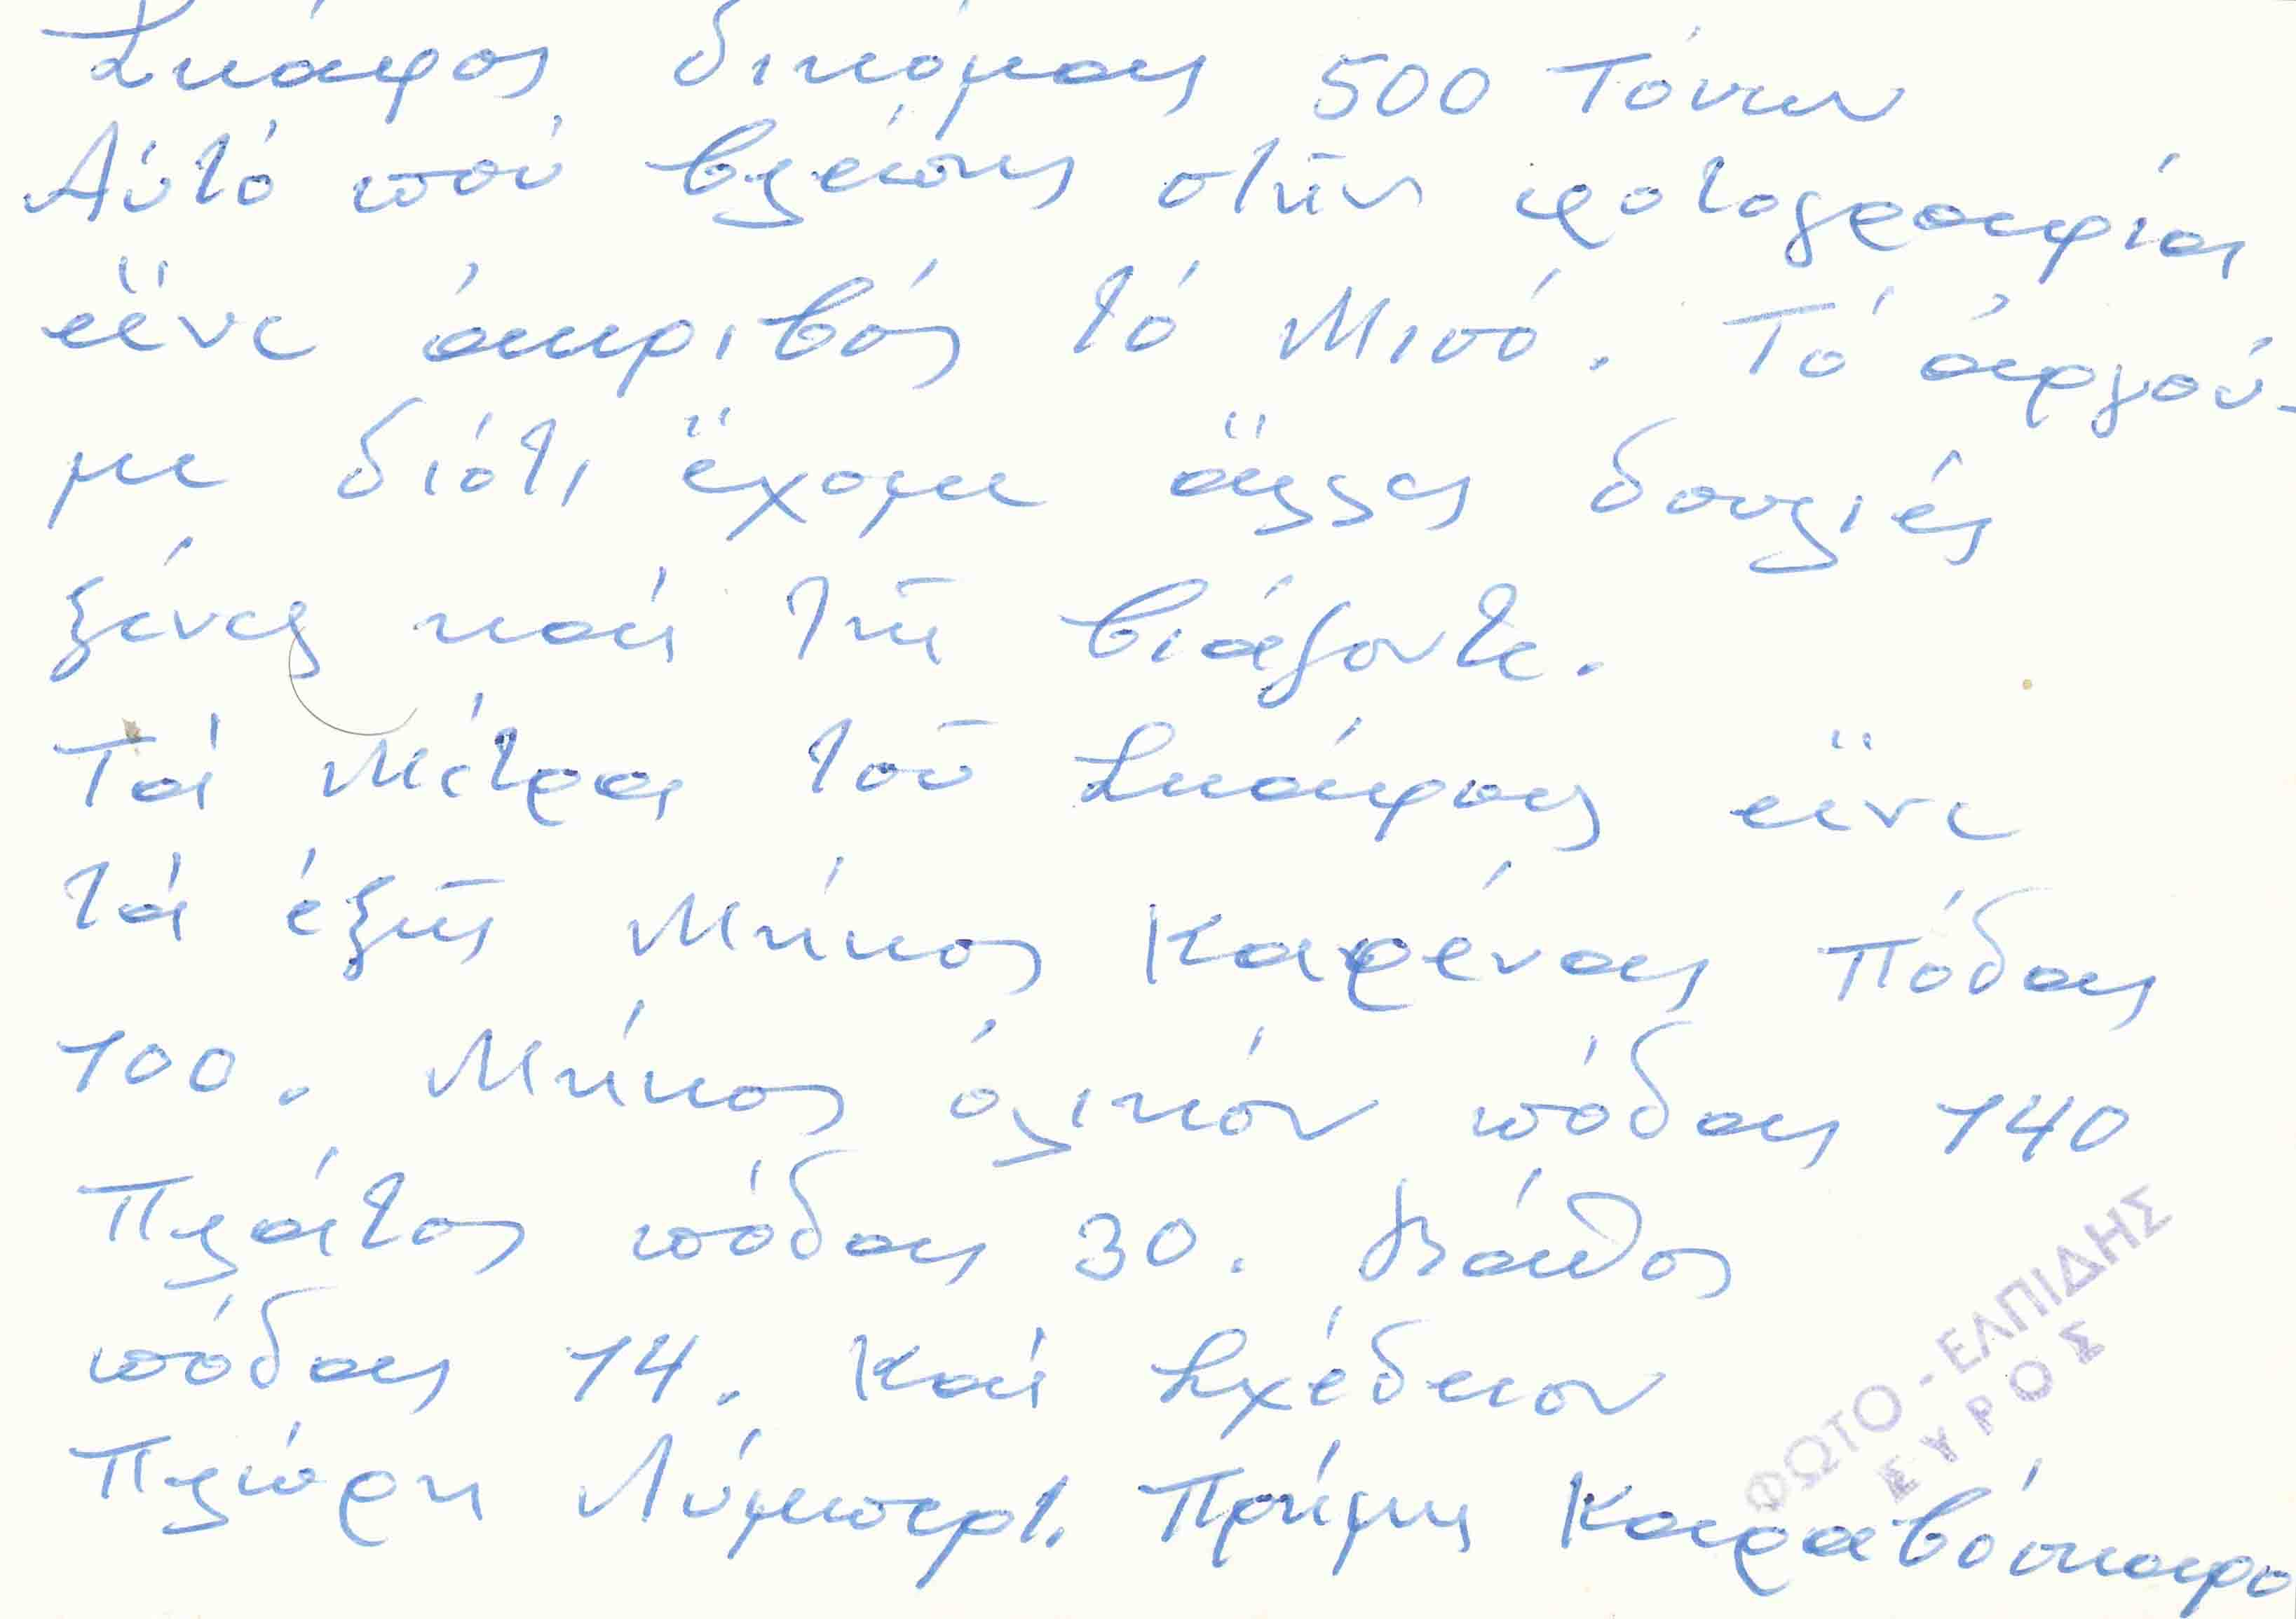 Σκάφος δικόμας 500 Τόνων
Αὐτό πού βλέπης στήν φοτογραφία
εἴνε ἀκριβός τό Μισό. Τό ἀργού-
με διότι ἔχομε ἄλλες δουλιές
ξένες καί τῆ βιάζοντε.
Τά Μέτρα τοῦ Σκάφους εἴνε
τά ἑξῆς Μήκος Καρένας Πόδας
100. Μήκος ὁλικόν πόδας 140
Πλάτος πόδας 30. Βάθος
πόδας 14. Καί Σχέδειον
Πλώρη Λύμπερτ. Πρήμης Καραβόσκαρο
ΦΩΤΟ - ΕΛΠΙΔΗΣ
ΣΥΡΟΣ